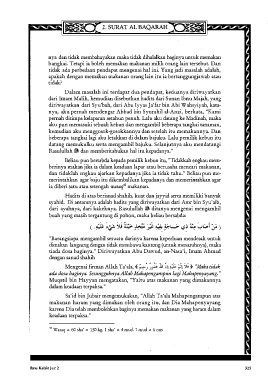 2. SURAT AL BAQARAH
nya dan tidak membahayakan maka tidak dihalalkan baginya untuk memakan
bangkai. Tetapi ia boleh memakan makanan milik orang lain tersebut. Dan
tidak ada perbedaan pendapat mengenai hal ini. Yang jadi masalah adalah,
apakah dengan memakan makanan orang lain itu ia bertanggungjawab atau
tidak?
Dalam masalah ini terdapat dua pendapat, keduanya diriwayatkan
dari Imam Malik, kemudian disebutkan hadits dari Sunan Ibnu Majah, yang
diriwayatkan dari Syu'bah, dari Abu Iyyas Ja'far bin Abi Wahsyiyah, kata-
nya, aku pernah mendengar Abbad bin Syarahil al-Anzi, berkata, "Kami
pernah ditimpa kelaparan setahun penuh. Lalu aku datang ke Madinah, maka
aku pun memasuki sebuah kebun dan mengambil beberapa tangkai tanaman,
kemudian aku menggosok-gosokkannya dan setelah itu memakannya. Dan
beberapa tangkai lagi aku letakkan di dalam bajuku. Lalu pemilik kebun itu
datang memukulku serta mengambil bajuku. Selanjutnya aku mendatangi
Rasulullah ﷺ dan memberitahukan hal itu kepadanya."
Beliau pun bersabda kepada pemilik kebun itu, "Tidakkah engkau mem-
berinya makan jika ia dalam keadaan lapar atau berusaha mencari makanan,
dan tidakkah engkau ajarkan kepadanya jika ia tidak tahu." Beliau pun me-
merintahkan agar baju itu dikembalikan kepadanya dan memerintahkan agar
ia diberi satu atau setengah wasaq makanan.
Hadits di atas berisnad shahih, kuat dan jayyid serta memiliki banyak
syahid. Di antaranya adalah hadits yang diriwayatkan dari Amr bin Syu'aib,
dari ayahnya, dari kakeknya. Rasulullah ﷺ ditanya mengenai mengambil
buah yang masih tergantung di pohon, maka beliau bersabda:
( مَنْ أَصَابَ مِنْهُ مِنْ ذِي حَاجَةٍ بِفِيهِ غَيْرَ مُتَّخِذٍ خُبْنَةً فَلاَ شَيْءَ عَلَيْهِ. )
"Barangsiapa mengambil sesuatu darinya karena keperluan mendesak untuk
dimakan langsung dengan tidak membawa kantong (untuk menaruhnya), maka
tiada dosa baginya." Diriwayatkan Abu Dawud, an-Nasa'i, Imam Ahmad
dengan sanad shahih
Mengenai firman Allah Ta'ala, ﴿ فَلاَ إِثْمَ عَلَيْهِ إِنَّ اللهَ غَفُورٌ رَّحِيمٌ ﴾ "Maka tidak
ada dosa baginya. Sesungguhnya Allah Mahapengampun lagi Mahapenyayang."
Muqatil bin Hayyan mengatakan, "Yaitu atas makanan yang dimakannya
dalam keadaan terpaksa."
Sa'id bin Jubair mengemukakan, "Allah Ta'ala Mahapengampun atas
makanan haram yang dimakan oleh orang itu, dan Dia Mahapenyayang
karena Dia telah membolehkan baginya memakan makanan yang haram dalam
keadaan terpaksa."
Ibnu Katsir Juz 2
325